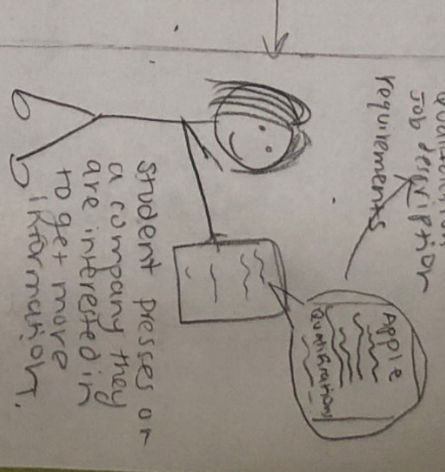 Job description
requirements
Apple
Qualifications
Student presses on
a company they
are interested in
to get more
information.